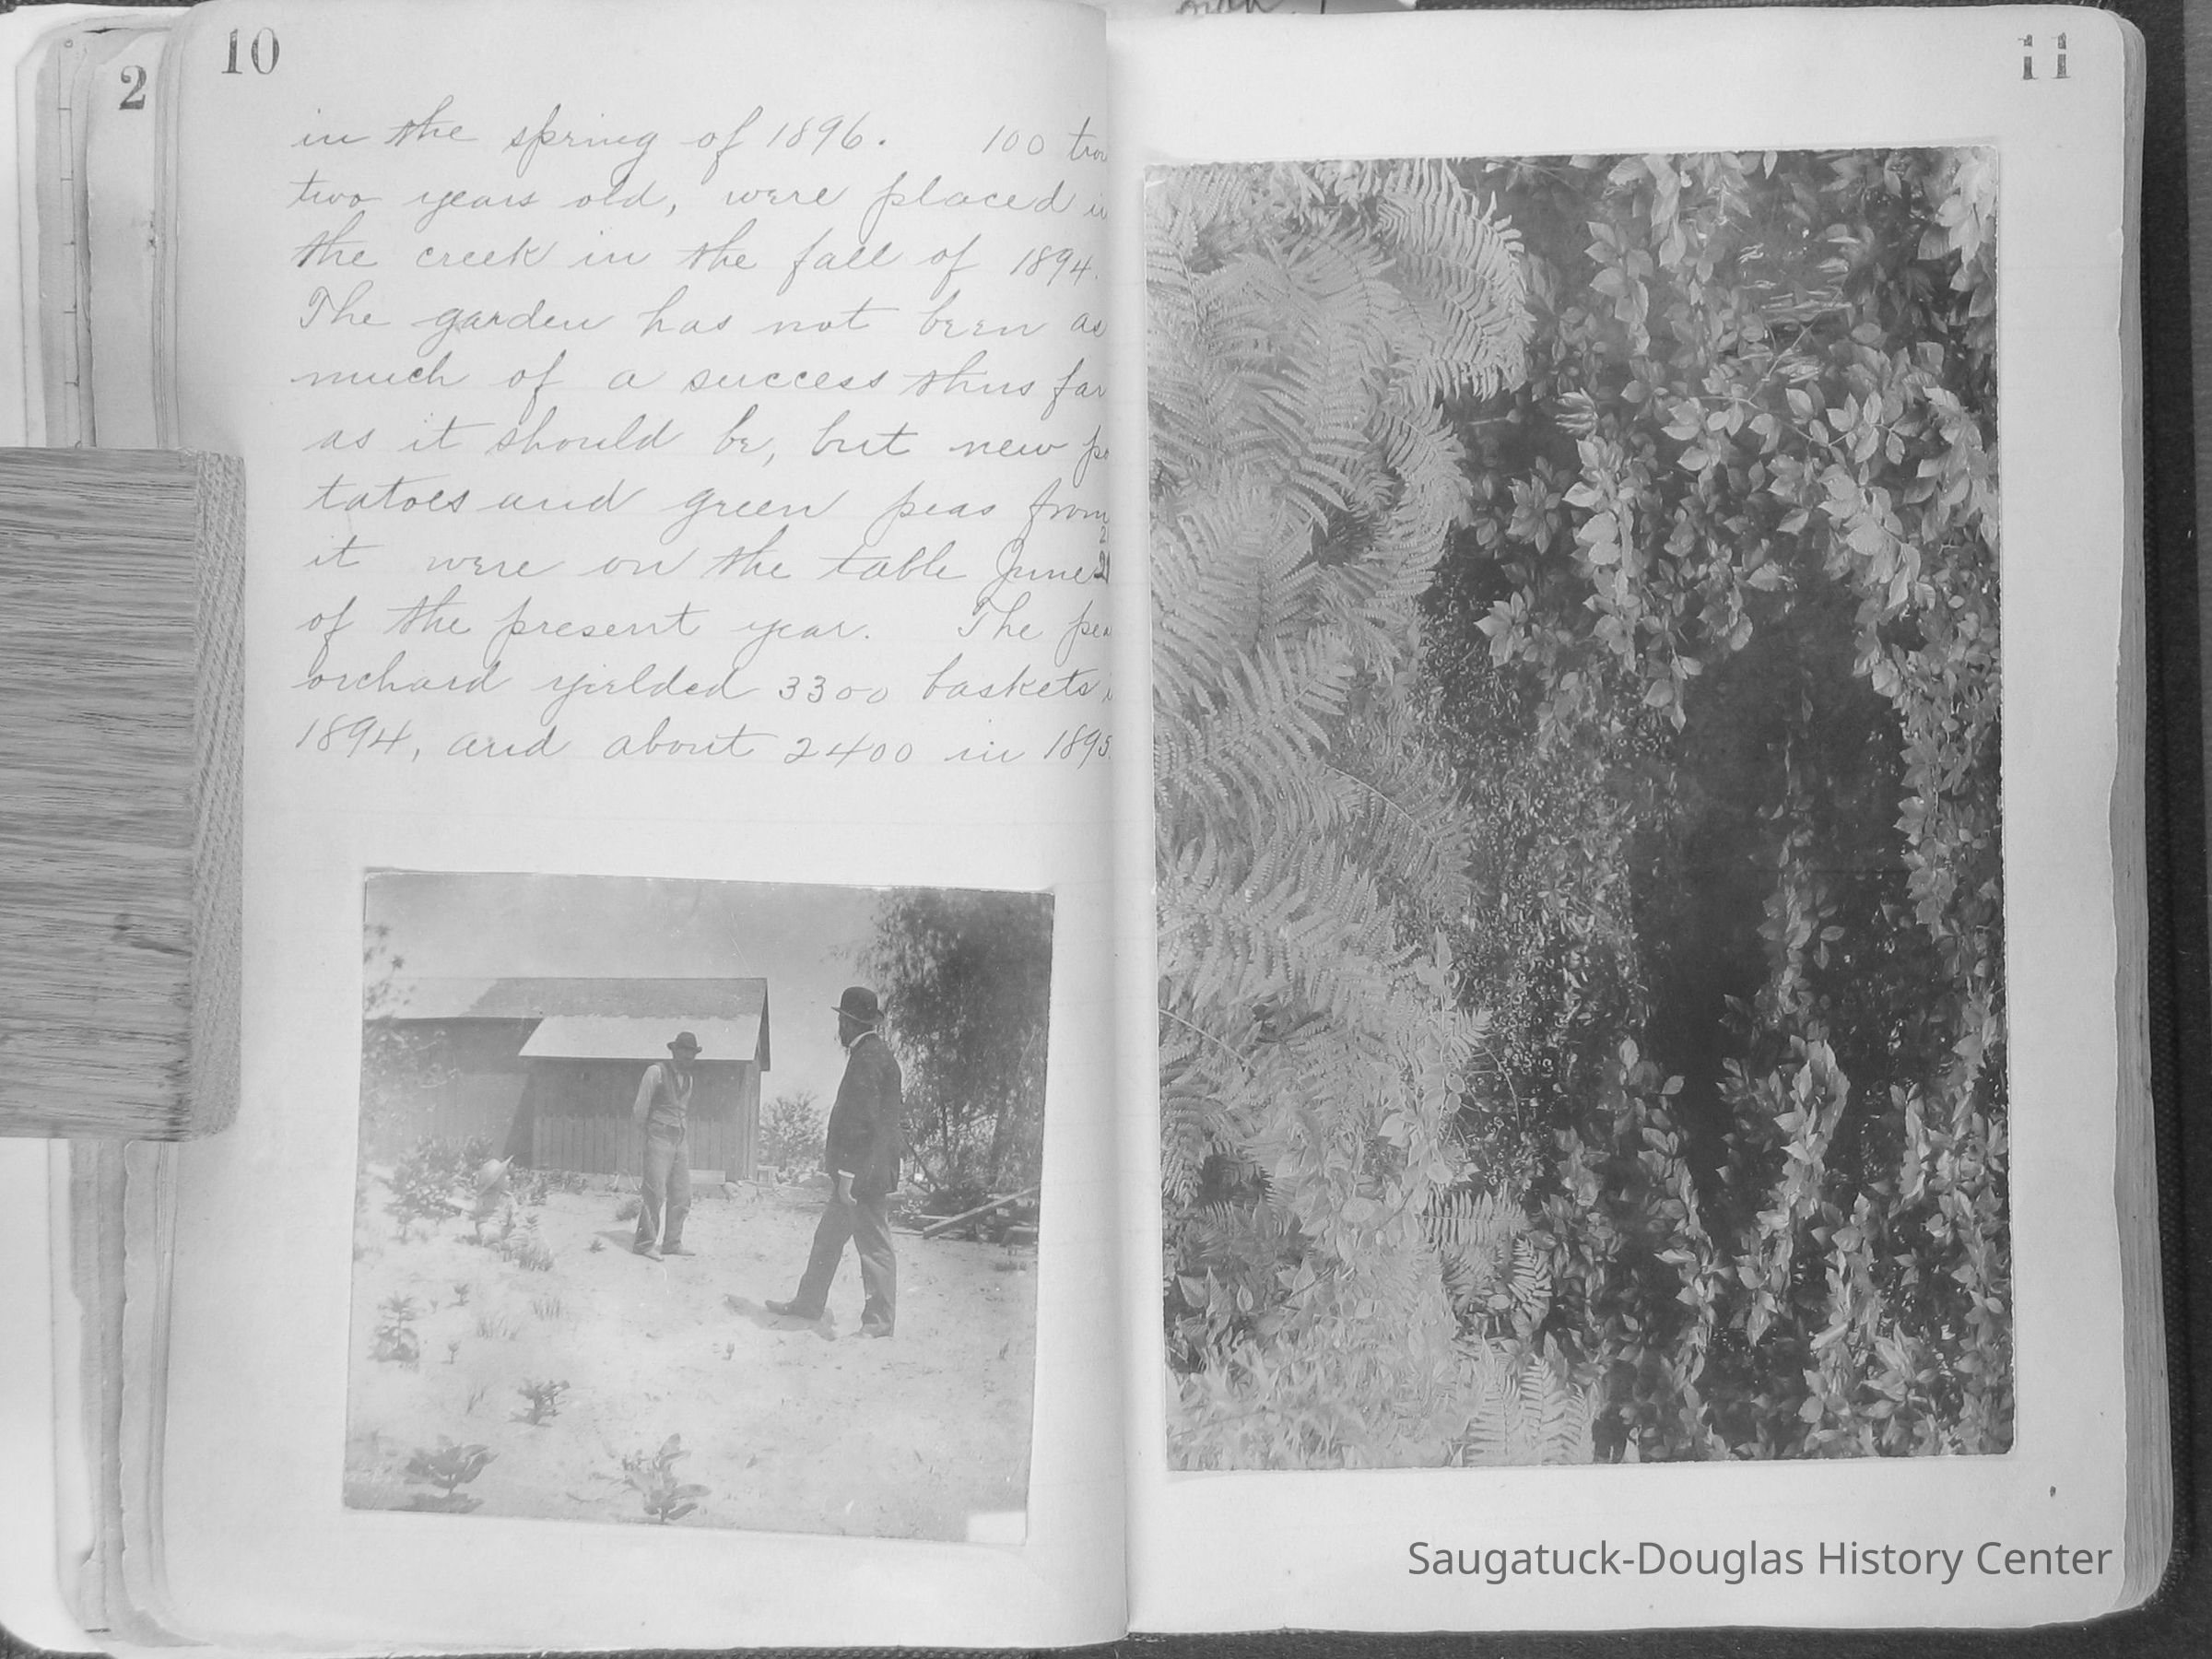 10
2
in the spring of 1896. 100
two years old, were placed
the creek in the fall of 1894.
The garden has not been as
much of a success thus far
as it should be, but new po
tatoes and green peas from
it were on the table June
of the present year. The
orchard yielded 3300 baskets
1894, and about 2400 in 1895.
11
Saugatuck-Douglas History Center